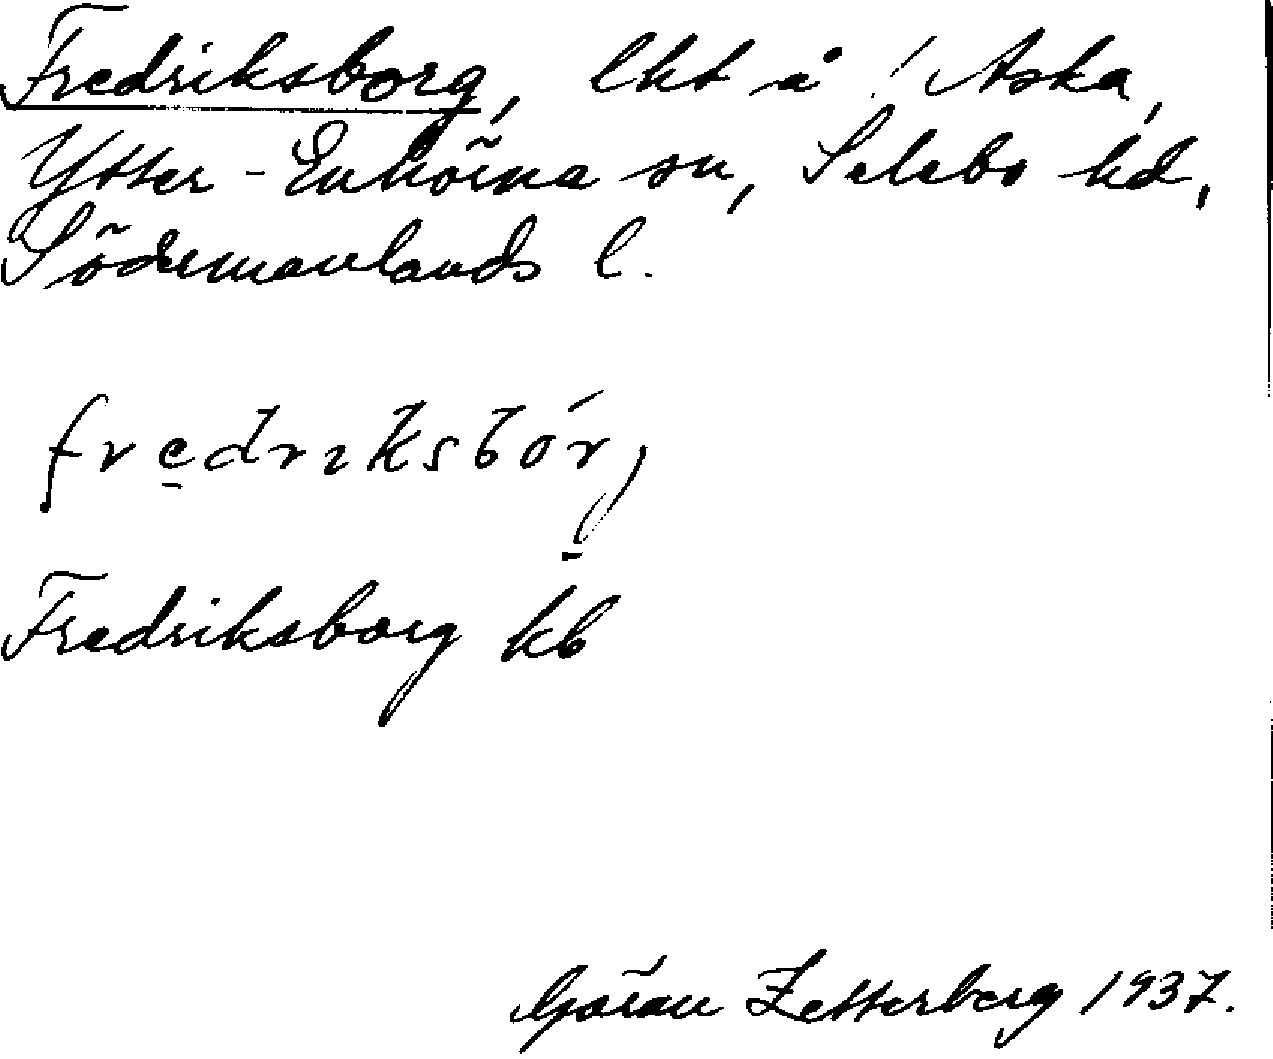 Fredriksborg, lht å ! Aska,
Ytter-Enhörna sn, Selebo hd,
Södermanlands l.
fredrıksbór,
Fredriksborg kb
Göran Zetterberg 1937.